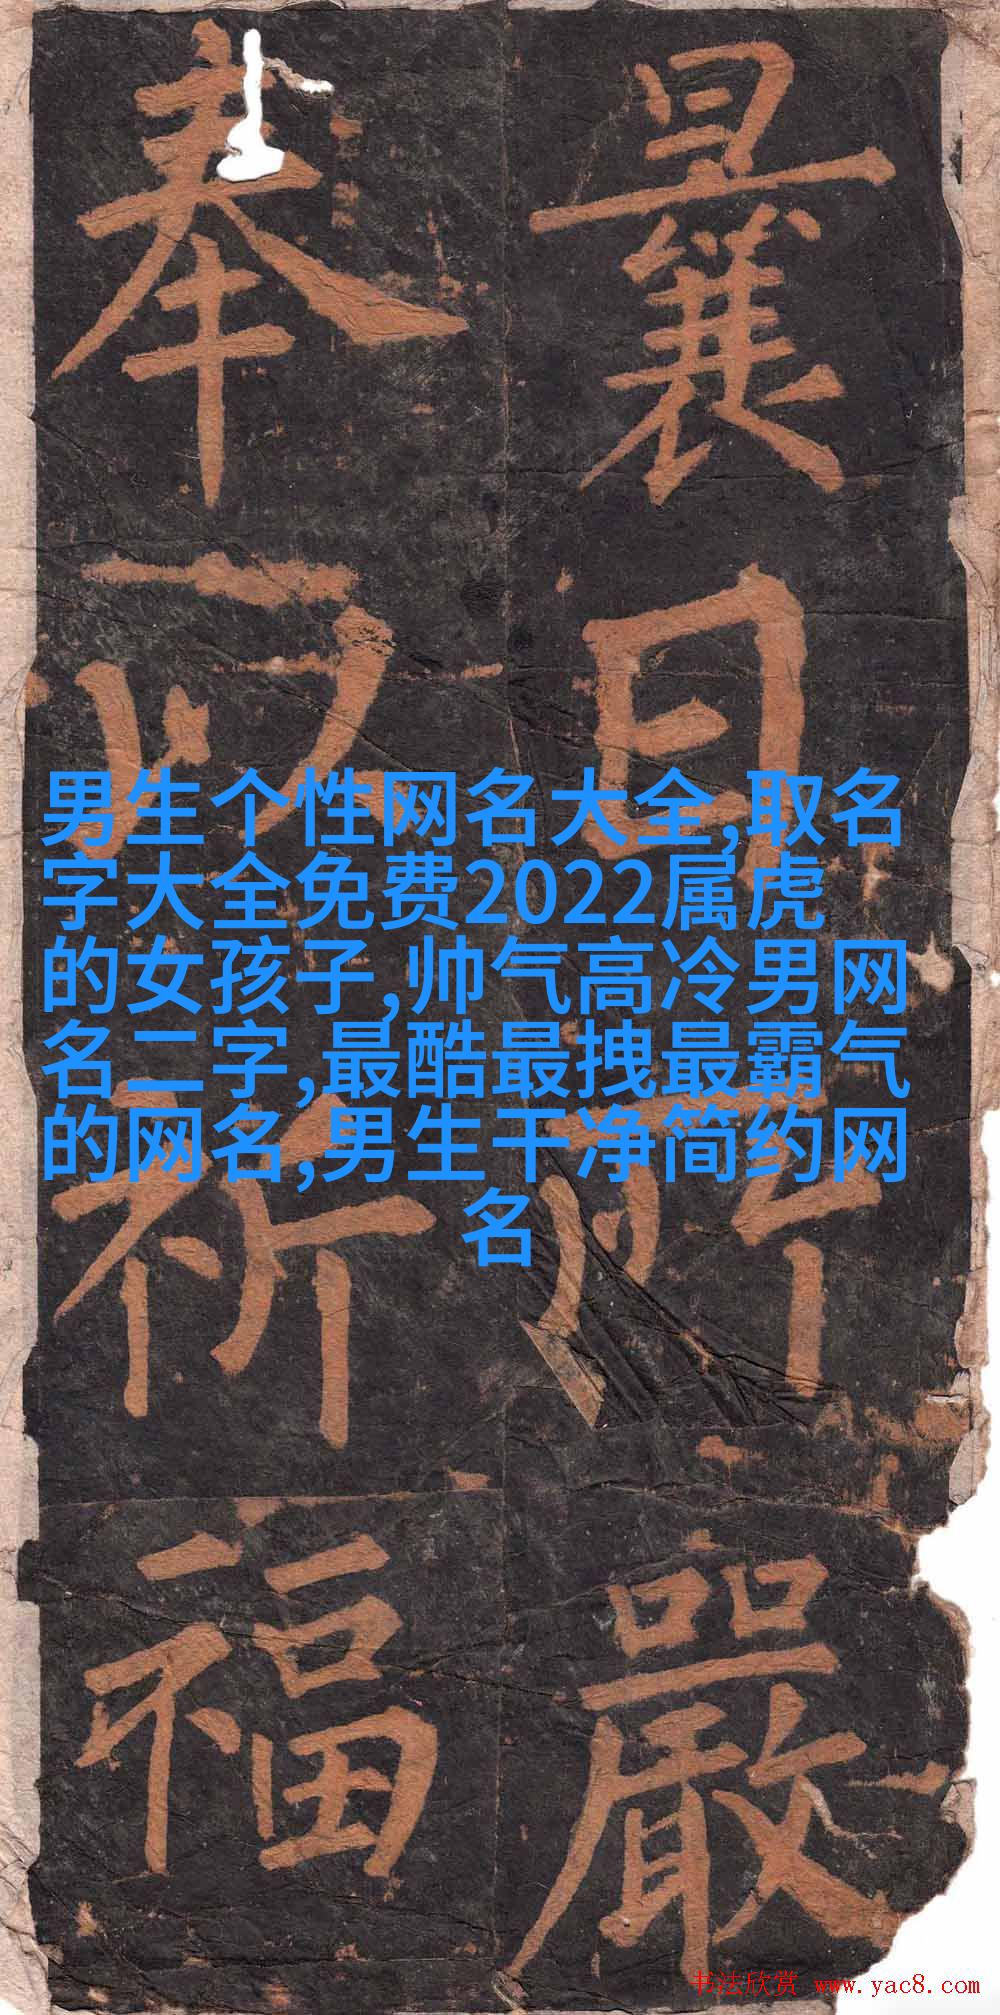 曩日所嚴
奉以祈福
男生个性网名大全,取名
字大全免费2022属虎
的女孩子,帅气高冷男网
名二字,最酷最拽最霸气
的网名,男生干净简约网
名
书法欣赏 www.yac8.com